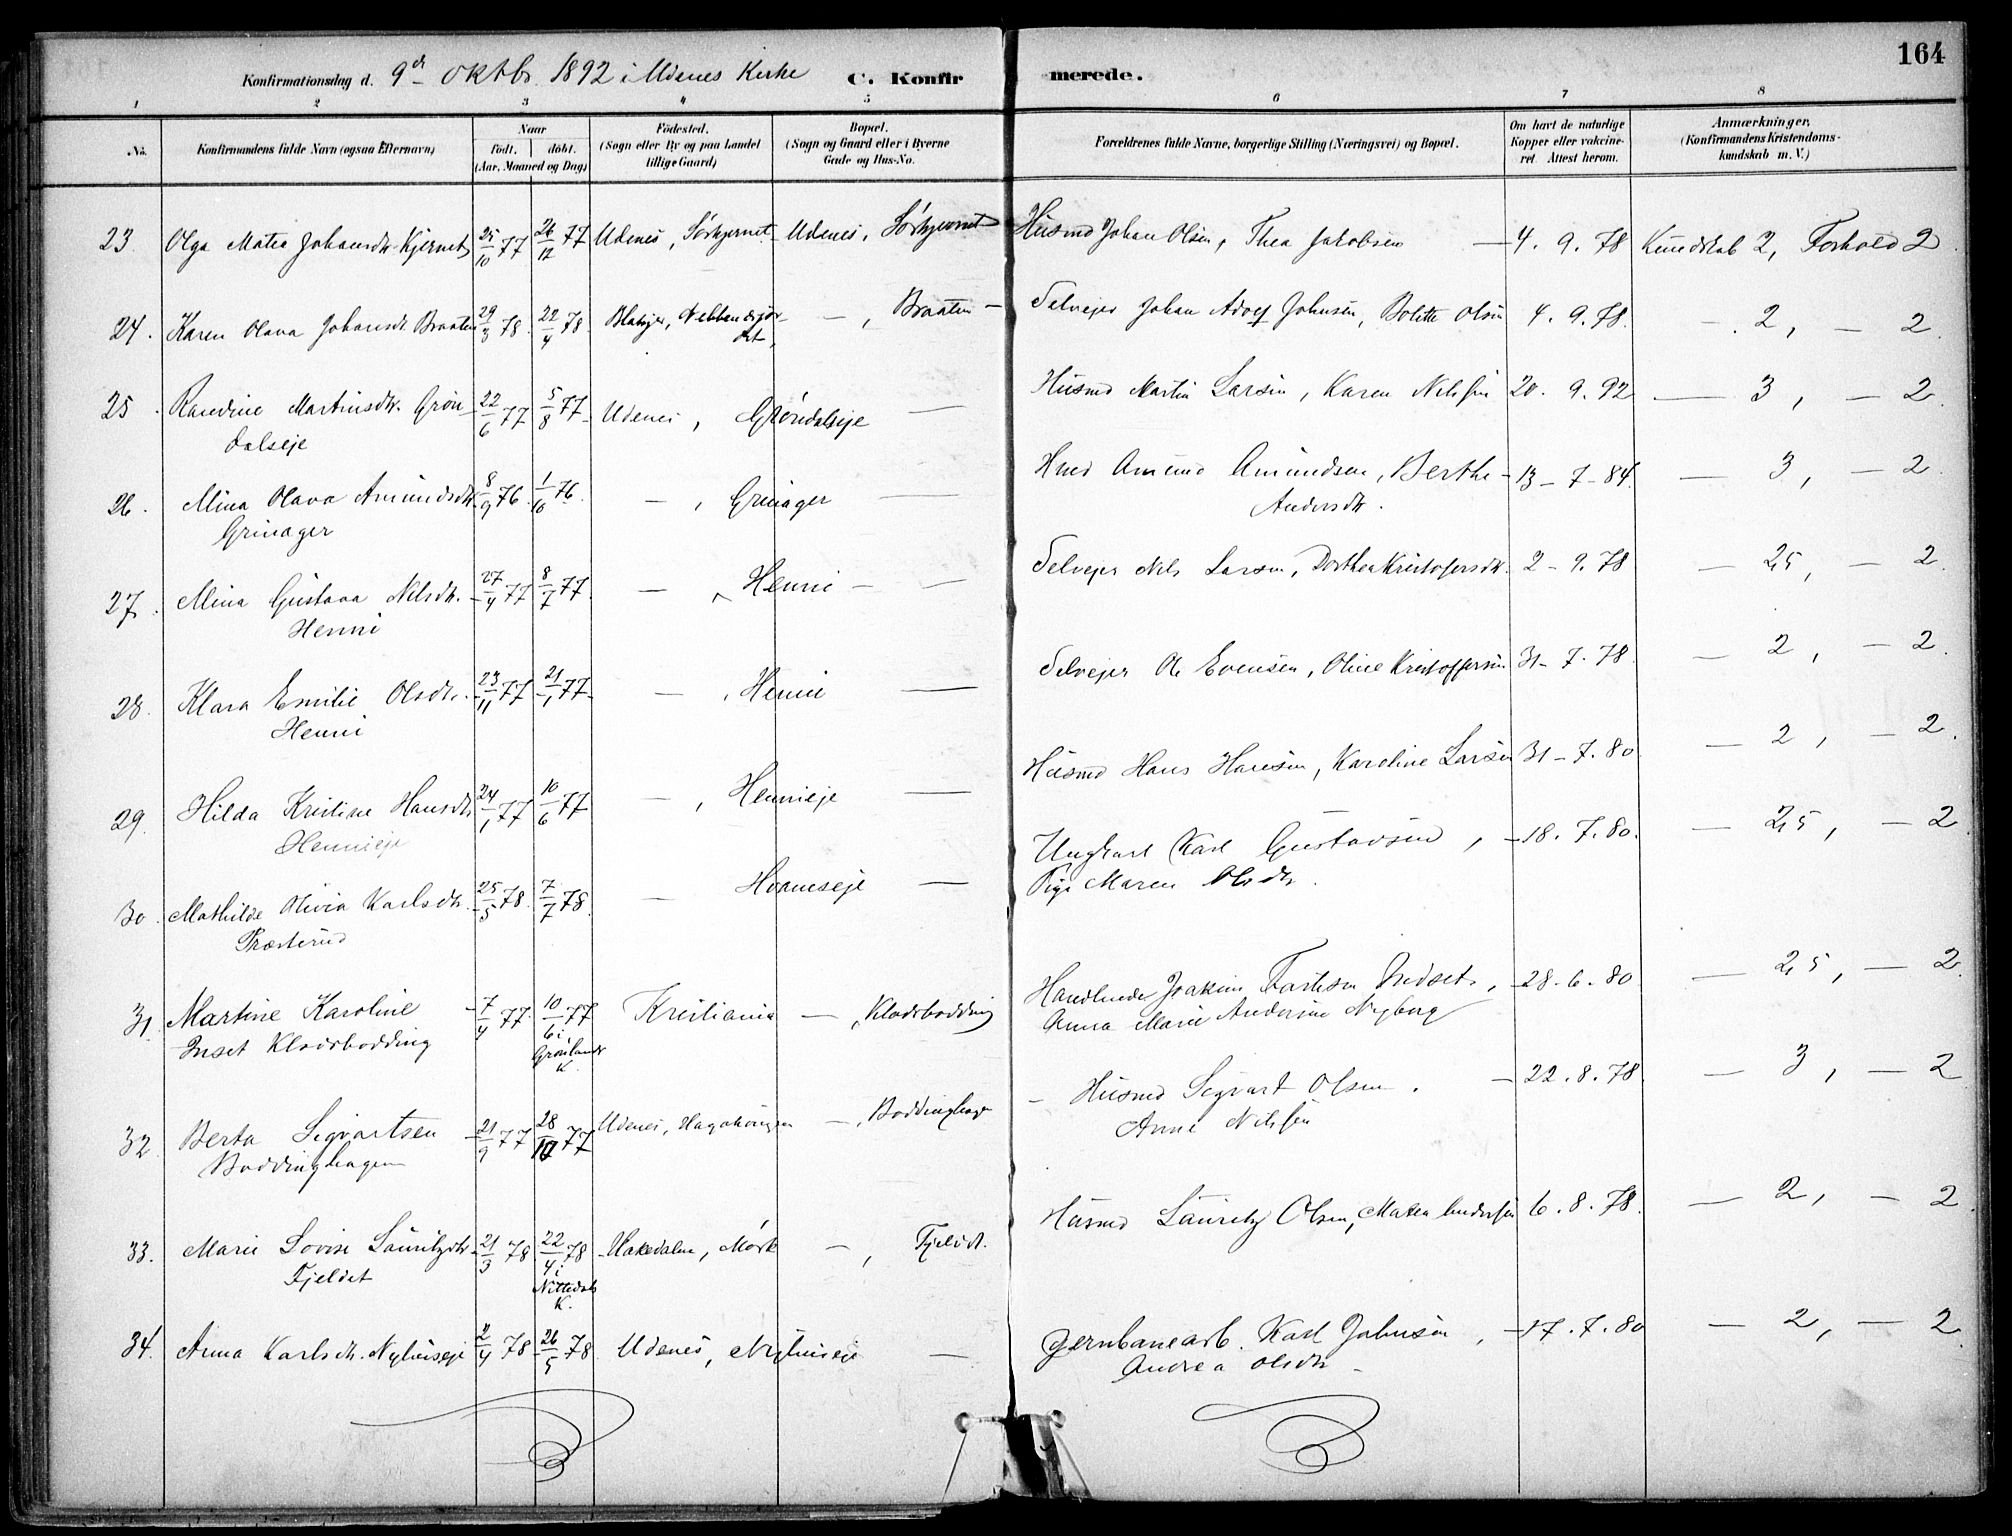 164
Konfirmationsdag d. 9de Oktbr. 1892 i Udenes Kirke C. Konfirmerede.
1 2 3 4 5 6 7 8
No. Konfirmandens fulde Navn (ogsaa Efternavn) Naar født. døbt. (Aar, Maaned og Dag) Fødested. (Sogn eller By og paa Landet tillige Gaard) Bopæl. (Sogn og Gaard eller i Byerne Gade og Hus-No. Forældrenes fulde Navne, borgerlige Stilling (Næringsvei) og Bopæl. Om havt de naturlige Kopper eller vakcineret. Attest herom. Anmærkninger, (Konfirmandens Kristendomskundskab m. V.)
23 Olga Matea Johansdtr. Kjernet 25/10 77 26/12 77 Udenes, Sørkjernet - Udenes, Sørkjernet Husmd Johan Olsen, Thea Jakobsen — 4. 9. 78 Kundskab 2, Forhold 2
24. Karen Olava Johansdt Braaten 29/3 78. 22/4 78 Blakjer, — , Braaten — Selvejer Johan Adolf Johnsen, Bolette Olsen 4. 9. 78. — 2, — 2.
25. Randine Martinsdtr. Grøn
dalseje 22/6 77 5/8 77 Udenes, Grøndalseje — Husmd Martin Larsen, Karen Nilsen 20. 9. 92 — 3, — 2.
26. Mina Olava Amundsdtr.
Grinager 8/9 76. 1/10 76. — , Grinager — Hmd Amund Amundsen, Berthe
Andersdtr. 13 - 7 - 84. — 3, — 2.
27. Mina Gustava Nilsdtr.
Henni 27/4 77 8/7 77. — , Henni — — Selvejer Nils Larsen, Dorthea Kristofersdtr. 2 - 9. 78 — 2,5, — 2.
28. Klara Emilie Olsdtr.
Henni 23/11 77 21/1 77 — , Henni — Selvejer Ole Evensen, Oline Kristoffersen 31 - 7. 78. — 2, — 2.
29. Hilda Kristine Hansdtr
Hennieje 24/1 77 10/6 77 — , Hennieje — Husmd Hans Hansen, Karoline Larsen 31 - 7. 80 — 2, — 2.
30. Mathilde Olivia Karlsdtr.
Præsterud 25/5 78. 7/7 78. — Hvameseje — Ungkarl Karl Gustavsen,
Pige Maren Olsdtr. — 18. 7. 80. — 2,5, — 2
31. Martine Karoline
Inset Klodsbodding 7/4 77 10/6 77 i
Grønlands
K. Kristiania — , Klodsbodding Handlende Joakim Indset,
Anna Marie Andersine Nyborg — 28. 6. 80 — 2,5, — 2.
32. Berta Sigvartsen
Boddinghagen 21/9 77 28/10 77 Udenes, — , Boddinghagen — Husmd Sigvart Olsen.
Anne Nilsen — 22. 8. 78. — 3, — 2
33. Marie Lovise Lauritzdtr
Fjeldet 21/3 78 22/4 78 i
Nittedals
K. Hakedalen, Mörk — , Fjeldet. Husmd Lauritz Olsen, Matea Andersen 6. 8. 78. — 2, — 2
34. Anna Karlsdtr. Nyhuseje 2/4 78 26/5 78 Udenes, Nyhuseje — Jernbanearb. Karl Johnsen,
Andrea Olsdtr — — 17. 7. 80 — 2, — 2.